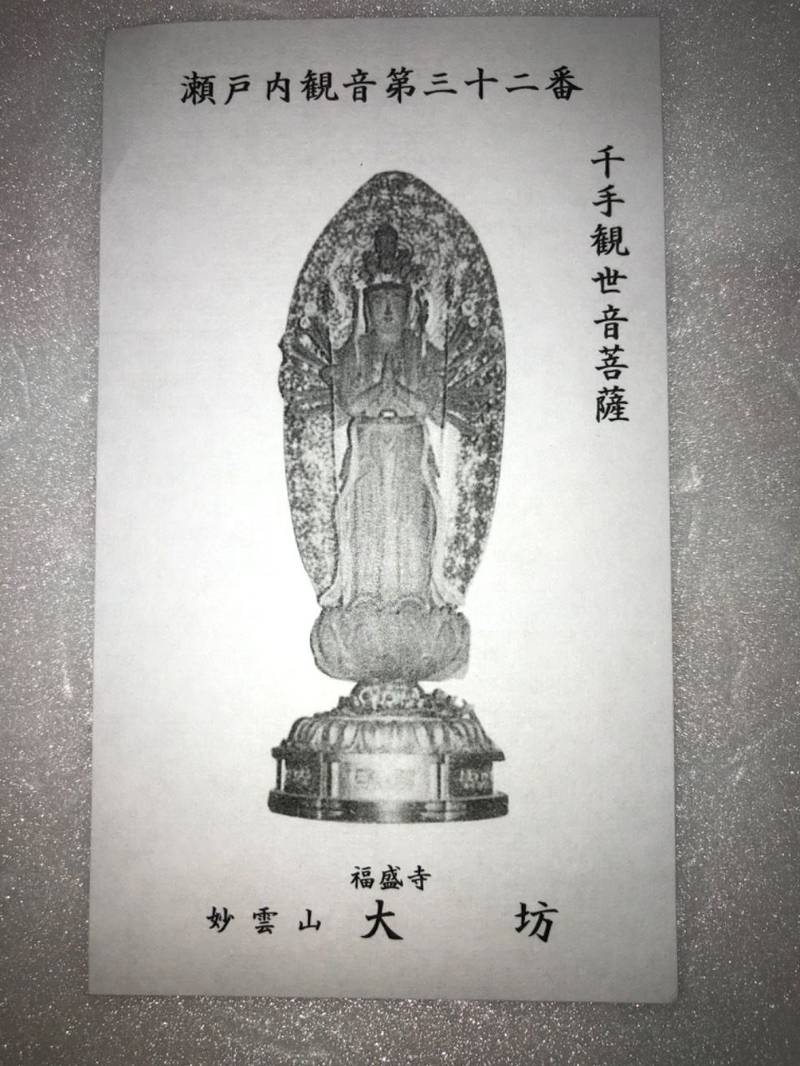 瀬戸内観音第三十二番
千手観世音菩薩
福盛寺
妙雲山 大 坊